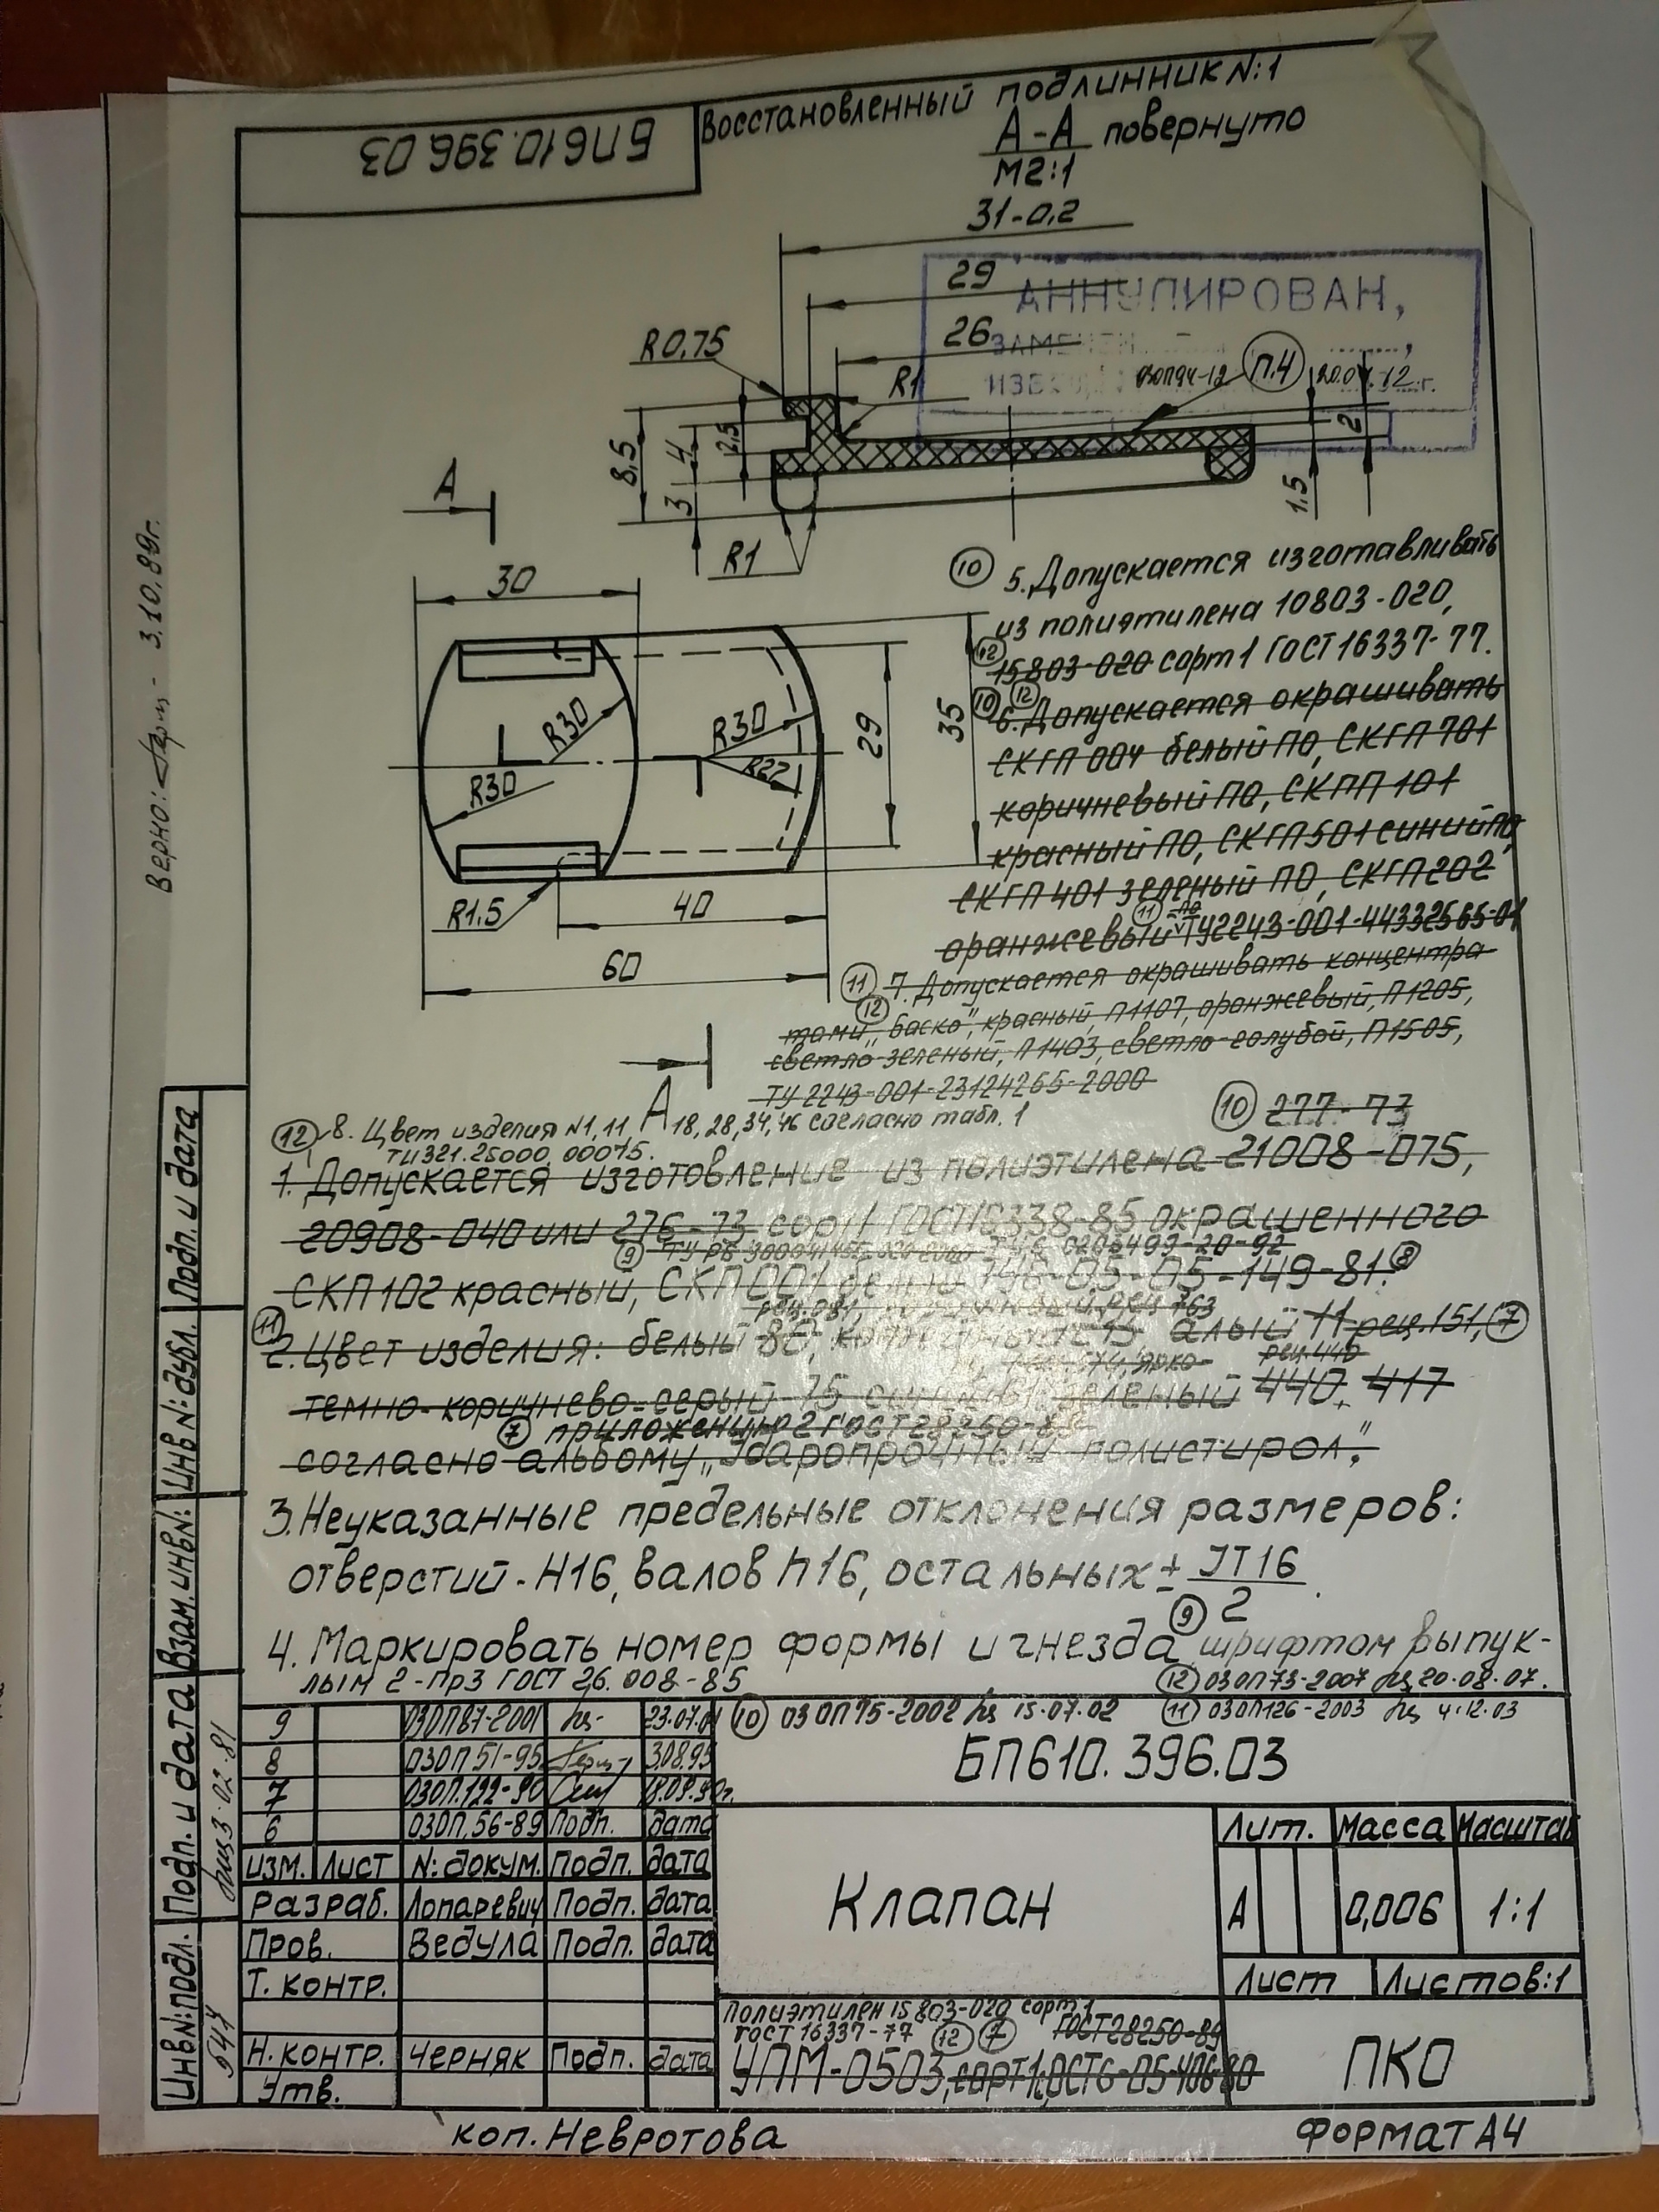 Восстановленный подлинник №:1
БП610.396.03
А-А повернуто
М2:1
31-0,2
29
АННУЛИРОВАН,
26
R0,75
R1
п.4
8,5
4
2,5
3
2
1,5
R1
А
30
R30
R30
R30
R22
29
35
R1,5
40
60
А
Верно: 3.10.89г.
10 5. Допускается изготавливать
из полиэтилена 10803-020,
12 15803-020 сорт 1 ГОСТ 16337-77.
10 12 6. Допускается окрашивать
СКГП 004 белый ПО, СКГП 701
коричневый ПО, СКПП 101
красный ПО, СКГП 501 синий ПО,
СКГП 401 зеленый ПО, СКГП 202
11 ПО
оранжевый ТУ2243-001-44332565-01
11 7. Допускается окрашивать концентра
12 тами „Баско", красный, П1107, оранжевый, П1205,
светло-зеленый, П1403, светло-голубой, П1505,
ТУ 2243-001-23124265-2000
12 8. Цвет изделия №1,11 18,28,34,46 согласно табл. 1
ТИ321.25000.00015.
10 277-73
1. Допускается изготовление из полиэтилена 21008-075,
20908-040 или 276-73 сорт 1 ГОСТ16338-85 окрашенного
9 ТУ6 0205499-20-92
СКП102 красный, СКП001 белый 05-05-149-81. 8
рец.081, рец 763
11 2. Цвет изделия: белый 80, алый 11 рец.151, 7
ярко- рец.440
темно-коричнево-серый 75 зеленый 440, 417
7 приложению 2 ГОСТ28250-89
согласно альбому „Ударопрочный полистирол".
3. Неуказанные предельные отклонения размеров:
отверстий-Н16, валов h16, остальных ± IT16
2
9
4. Маркировать номер формы и гнезда шрифтом выпук-
лым 2-Пр3 ГОСТ 26.008-85
12 030П73-2007 20.08.07.
10 030П75-2002 15.07.02 11 030П126-2003 4.12.03
9 030П87-2001 23.07.01
8 030П51-95 3.08.95
7 030П.122-90 18.09.90г.
6 030П.56-89 Подп. дата
Изм. Лист №:докум. Подп. дата
Разраб. Лопаревич Подп. дата
Пров. Ведула Подп. дата
Т. контр.
Н. контр. Черняк Подп. дата
Утв.
БП610.396.03
Клапан
Лит. Масса Масштаб
А 0,006 1:1
Лист Листов:1
Полиэтилен 15803-020 сорт 1
ГОСТ 16337-77 12 7 ГОСТ28250-89
УПМ-0503, сорт1, ОСТ6-05-406-80
ПКО
Подп. и дата
Инв №:дубл.
Взам.инв№:
Подп. и дата
3.02.81
Инв№:подл.
коп. Невротова
Формат А4